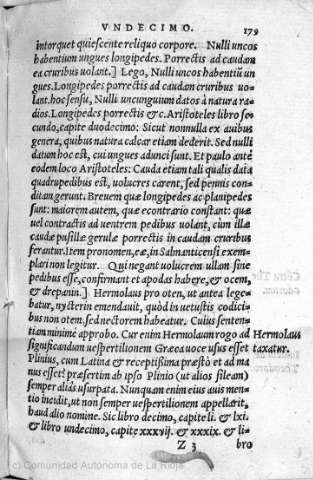 VNDECIMO. 179
intorquet quiescente reliquo corpore. Nulli uncos
habentium ungues longipedes. Porrectis ad caudam
ea cruribus uolant.] Lego, Nulli uncos habentiū un
gues. Longipedes porrectis ad caudam cruribus uo-
lant. hoc sensu, Nulli uncunguium datos à natura ra-
dios. Longipedes porrectis &c. Aristoteles libro se-
cundo, capite duodecimo: Sicut nonnulla ex auibus
genera, quibus natura calcar etiam dederit. Sed nulli
datum hoc est, cui ungues adunci sunt. Et paulo antè
eodem loco Aristoteles: Cauda etiam tali qualis data
quadrupedibus est, uolucres carent, sed pennis con-
ditam gerunt. Breuem quæ longipedes ac planipedes
sunt: maiorem autem, quæ econtrario constant: quæ
uel contractis ad uentrem pedibus uolant, cùm illæ
caudæ pusillæ gerulæ porrectis in caudam cruribus
ferantur. Item pronomen, ea, in Salmanticensi exem-
plari non legitur. Qui negant uolucrem ullam sine
pedibus esse, confirmant et apodas habere, & ocem,
& drepanin.] Hermolaus pro oten, ut antea lege-
batur, nycterin emendauit, quòd in uetustis codici-
bus non oten, sed nectorem habeatur. Cuius senten-
tiam minimè approbo. Cur enim Hermolaum rogo ad Hermolaus
significandum uespertilionem Græca uoce usus esset taxatur.
Plinius, cum Latina & receptissima præstò et ad ma
nus esset? præsertim ab ipso Plinio (ut alios sileam)
semper aliàs usurpata. Nunquam enim eius auis men-
tio incidit, ut non semper uespertilionem appellarit,
haud alio nomine. Sic libro decimo, capite li. & lxi.
& libro undecimo, capite xxxvij. & xxxix. & li-
Z 3 bro
(c) Comunidad Autónoma de La Rioja